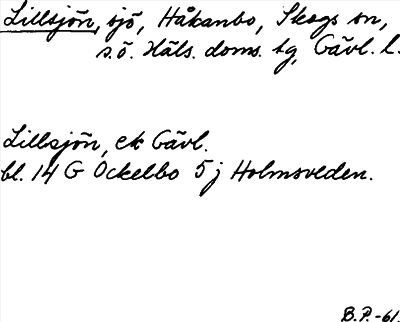 Lillsjön, sjö, Håkanbo, Skogs sn,
s.ö. Häls. doms. tg, Gävl. l.
Lillsjön, ek Gävl.
bl. 14 G Ockelbo 5 j Holmsveden.
B.P.-61.